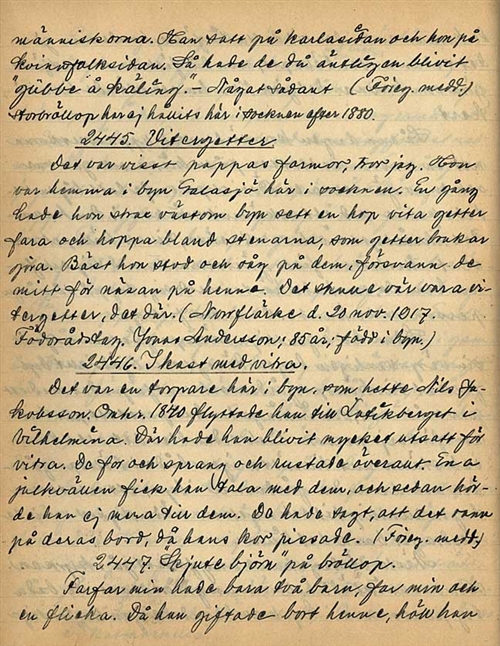 människorna. Han satt på karlasidan och hon på
kvinnfolksidan. Så hade de då äntligen blivit
"gübbe å käling". – Något sådant (Föreg. medd.)
storbröllop har ej hållits här i socknen efter 1880.
2445. Vitergetter.
Det var visst pappas farmor, tror jag. Hon
var hemma i byn Galasjö här i socknen. En gång
hade hon strax västom byn sett en hop vita getter
fara och hoppa bland stenarna, som getter brukar
göra. Bäst hon stod och såg på dem, försvann de
mitt för näsan på henne. Det skulle väl vara vi-
tergetter, det där. (Norrflärke d. 20 nov. 1917.
Födorådstag. Jonas Andersson, 85 år, född i byn.)
2446. I kast med vitra.
Det var en torpare här i byn, som hette Nils Ja-
kobsson. Omkr. 1870 flyttade han till Latikberget i
Vilhelmina. Där hade han blivit mycket utsatt för
vitra. De for och sprang och rustade överallt. En a
julkvällen fick han tala med dem, och sedan hör-
de han ej mera till dem. De hade sagt, att det rann
på deras bord, då hans kor pissade. (Föreg. medd.)
2447. "Skjuta björn" på bröllop.
Farfar min hade bara två barn, far min och
en flicka. Då han giftade bort henne, höll han